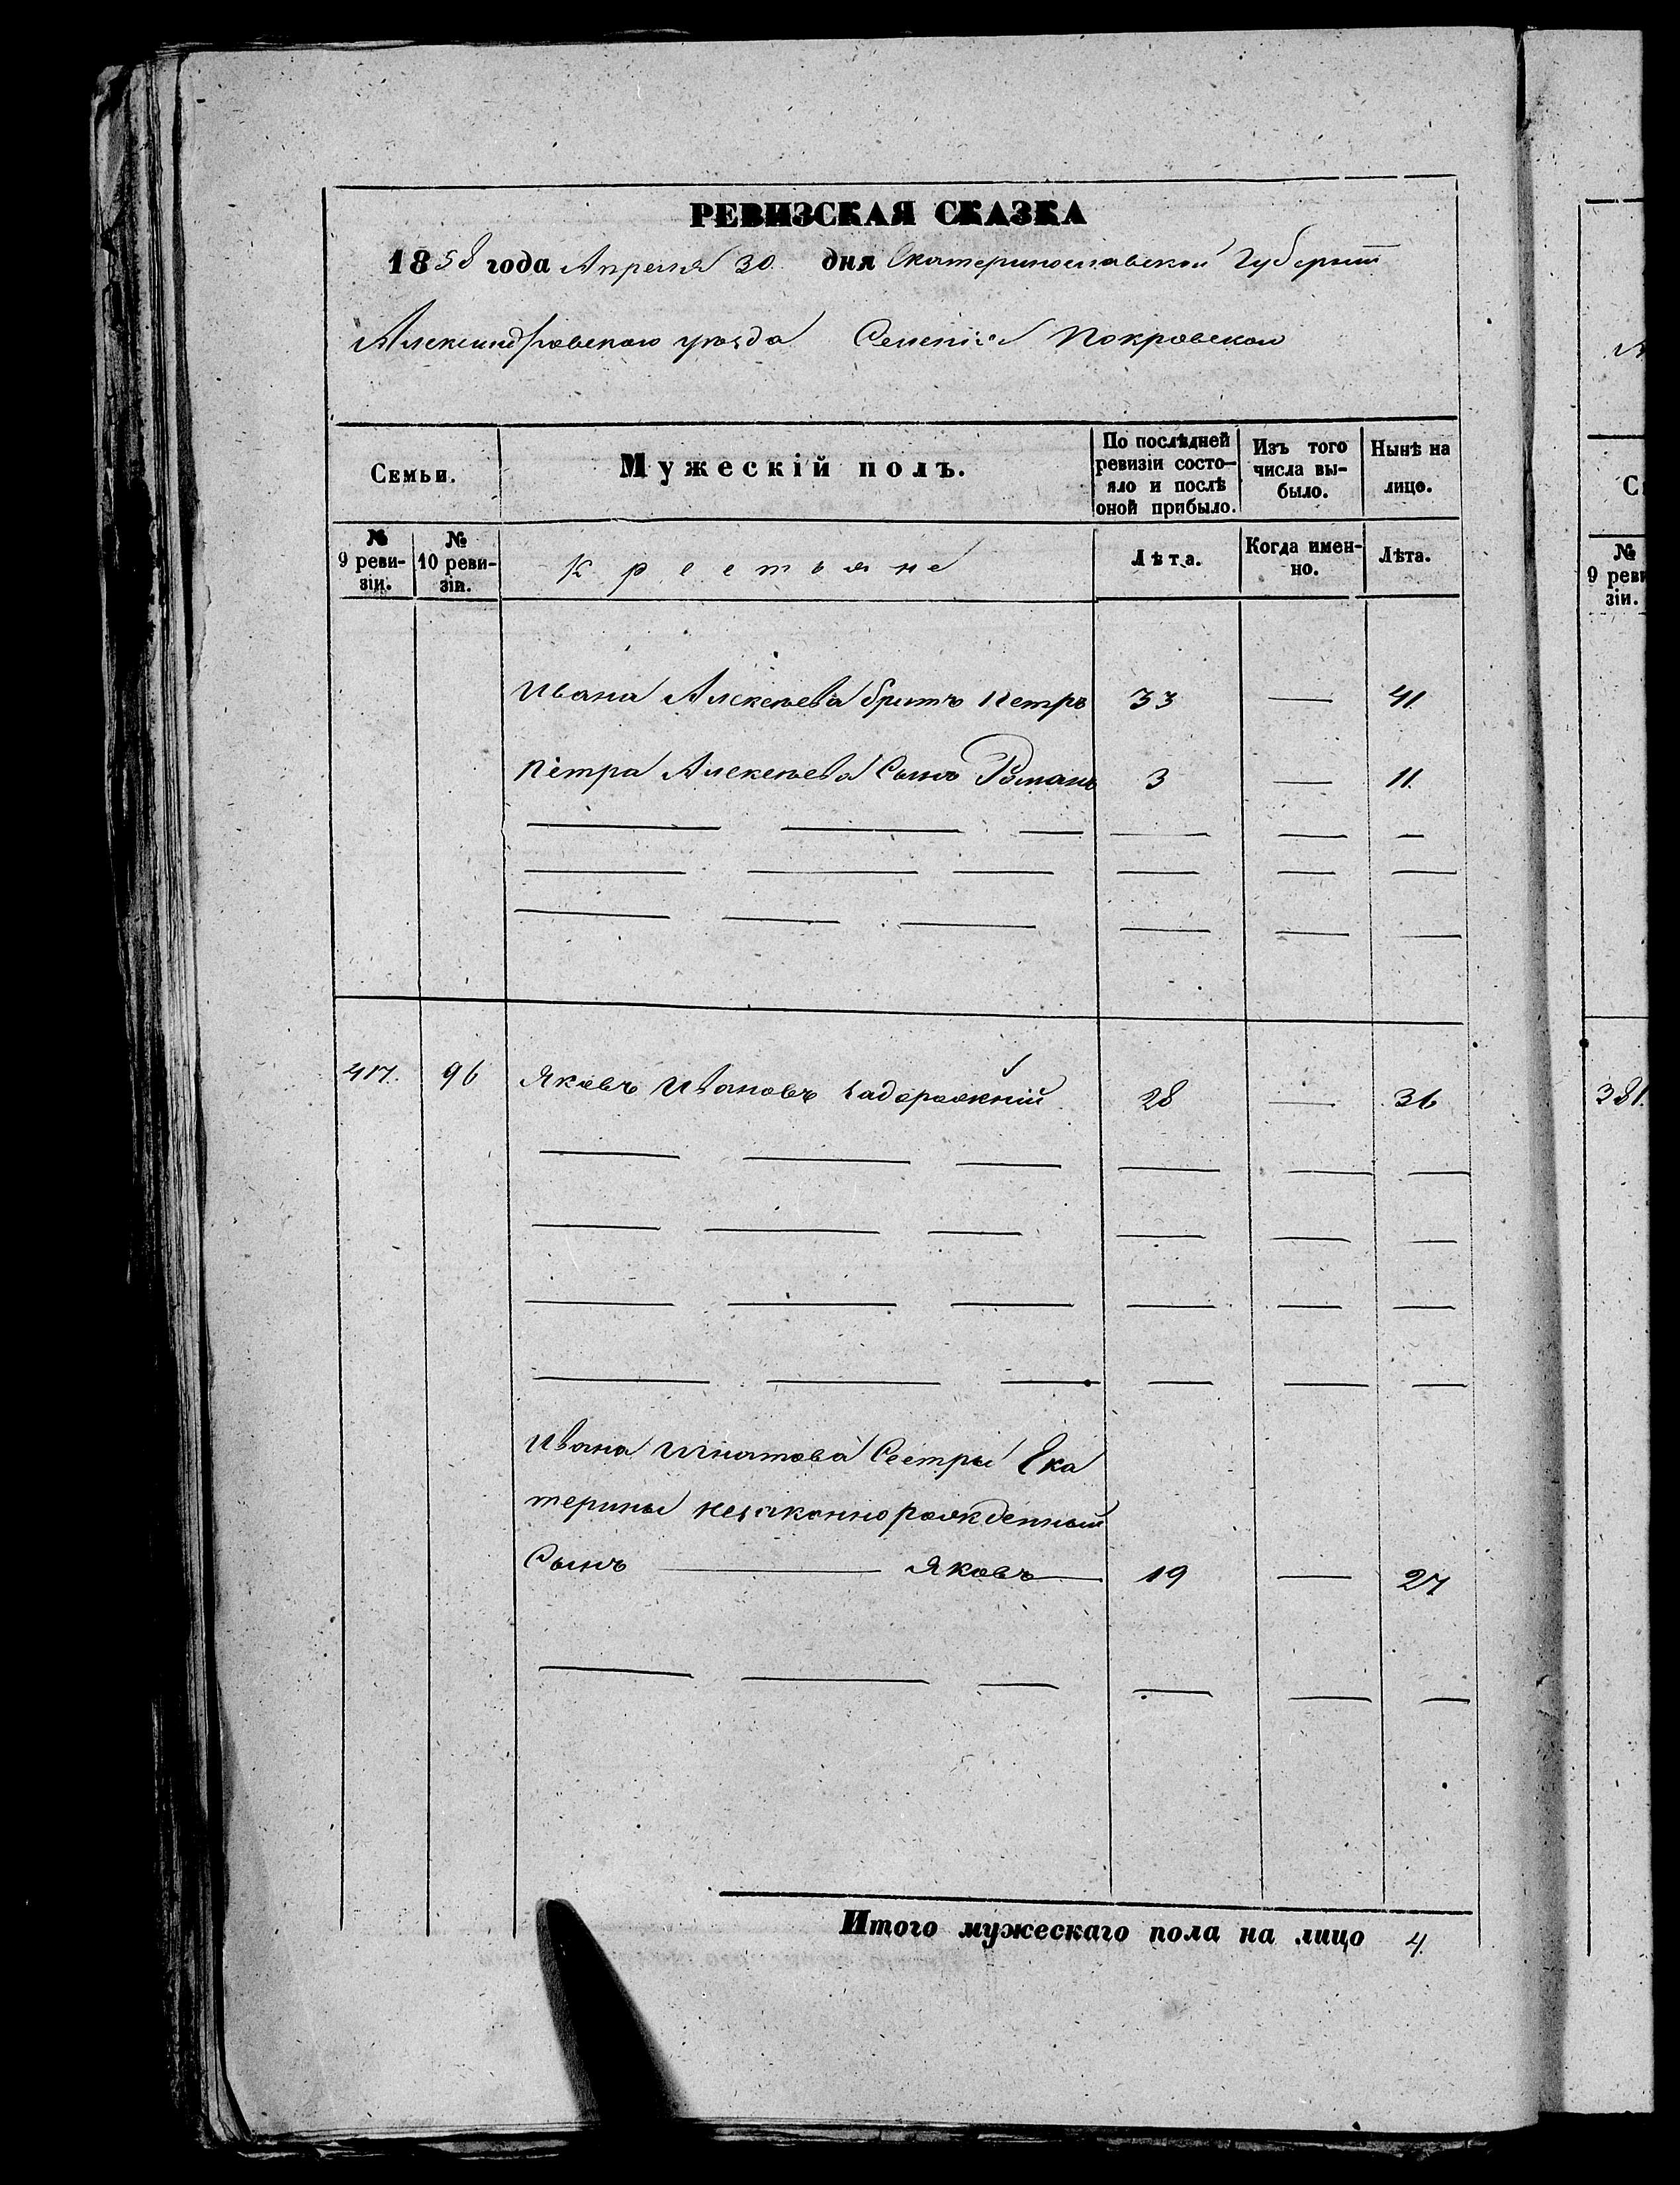 РЕВИЗСКАЯ СКАЗКА
1858 года Апреля 30. дня Екатеринославской Губерніи
Александровскаго уѣзда Селенія Покровскаго
Семьи.
Мужескій полъ.
По послѣдней ревизіи состо-
яло и послѣ оной прибыло.
Изъ того числа вы-
было.
Нынѣ на лицо.
№ 9 реви-
зіи.
№ 10 реви-
зіи.
Крестьяне
Лѣта.
Когда имен-
но.
Лѣта.
Ивана Алексѣева братъ Петръ 33 — 41.
Петра Алексѣева Сынъ Романъ 3 — 11.
417. 96 Яковъ Ивановъ Задорожній 28 — 36
Ивана Игнатова Сестры Ека
терины незаконнорожденный
Сынъ — Яковъ — 19 — 27
Итого мужескаго пола на лицо 4.
С
№
9 реви
зіи.
381.